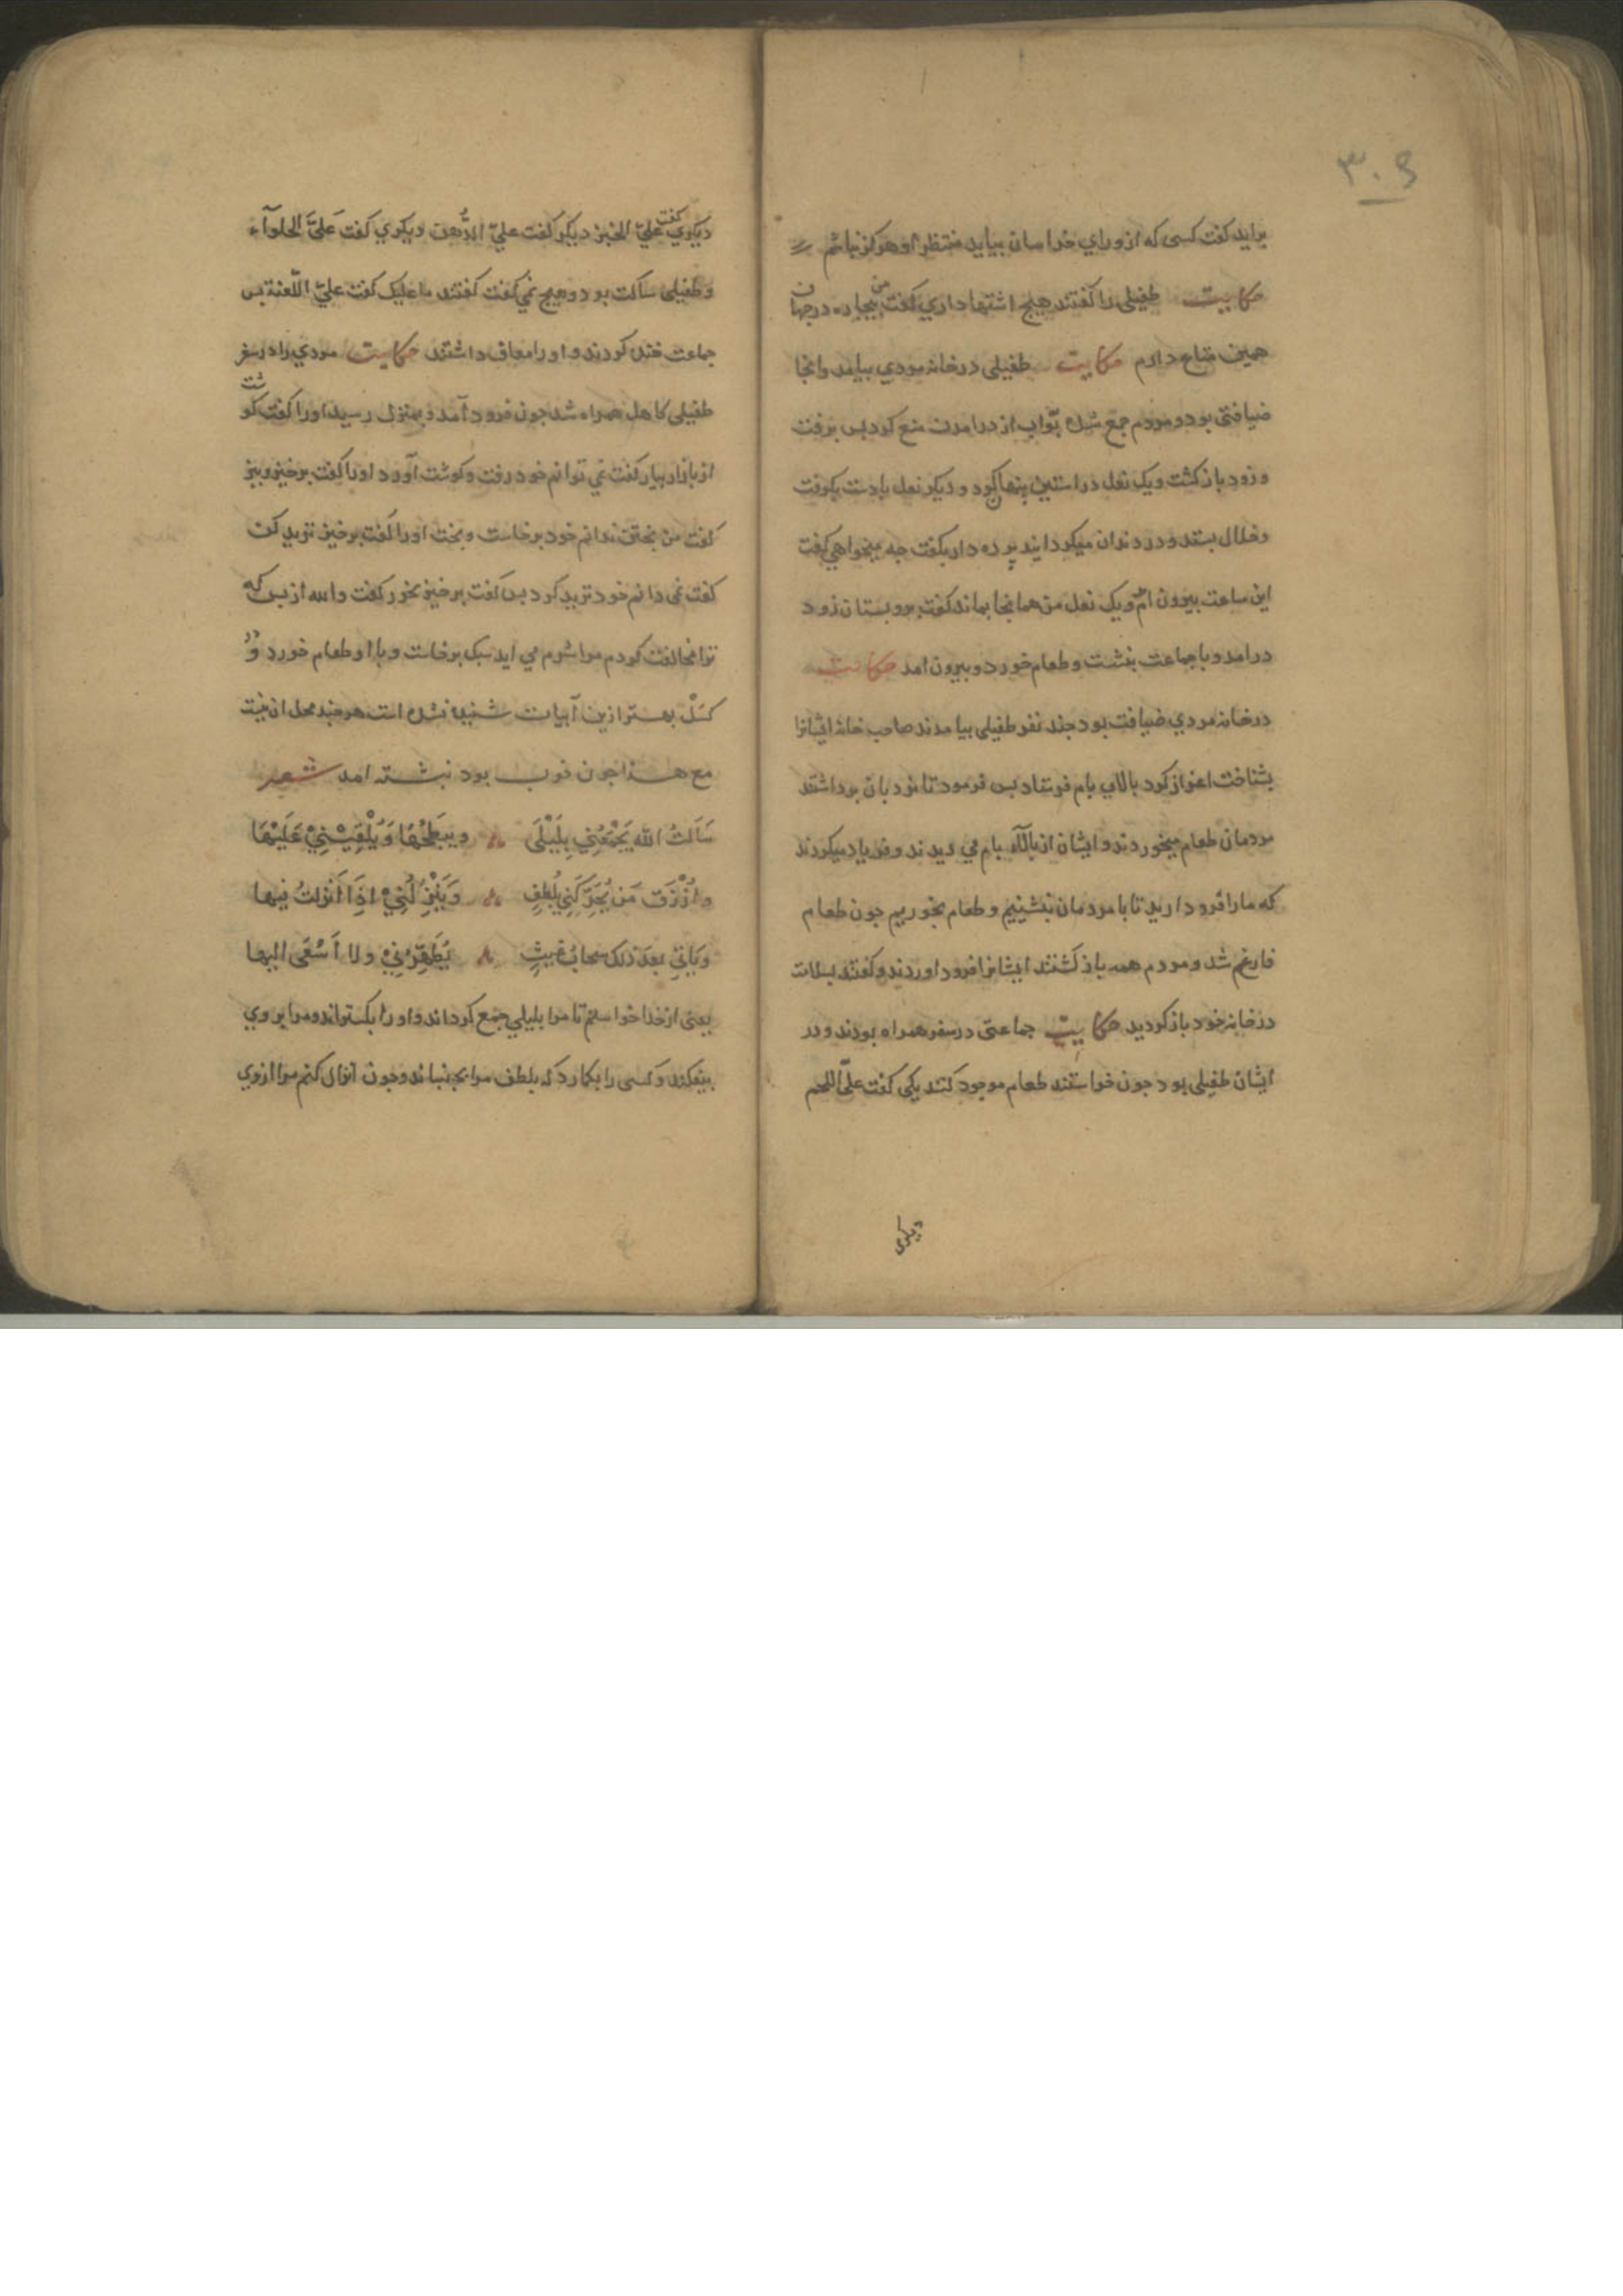 ۳۰۵
براید کفت کسی که از ورای خراسان بیاید منتظر او هرکز نباشم
حکایت طفیلی را کفتند هیچ اشتها داری کفت من بیچاره در جهان
همین متاع دارم حکایت طفیلی در خانه مردی بیامد وانجا
ضیافتی بود و مردم جمع شده بوّاب از درامدن منع کرد بس برفت
و زود باز کشت و یک نعل در استین بنهان کرد و دیکر نعل بادست بکرفت
و خلال بستد و در دندان میکردانید برده دار بکفت جه میخواهی کفت
این ساعت بیرون امدم و یک نعل من همانجا بماند کفت برو بستان زود
درامد و با جماعت بنشست و طعام خورد و بیرون امد حکایت
در خانه مردی ضیافت بود جند نفر طفیلی بیامدند صاحب خانه ایشانرا
بشناخت اعزاز کرد بالای بام فرستاد بس فرمود تا نردبان برداشتند
مردمان طعام میخوردند و ایشان از بالآء بام می دیدند و فریاد میکردند
که مارا فرود ارید تا با مردمان بنشینیم و طعام بخوریم جون طعام
فارغ شد و مردم همه باز کشتند ایشانرا فرود اوردند و کفتند بسلامت
در خانه خود باز کردید حکایت جماعتی در سفر همراه بودند و در
ایشان طفیلی بود جون خواستند طعام موجود کنند یکی کفت علیّ اللحم
دیکری
دیکری کفت علیّ الخبز دیکر کفت علیّ الدُّهن دیکری کفت عَلیَّ الحلوآء
و طفیلی ساکت بود و هیچ نمی کفت کفتند ما علیک کفت علیّ اللّعنة بس
جماعت خنده کردند و او را معاف داشتند حکایت مردی را در سفر
طفیلی کاهل همراه شد جون فرود آمد و بمنزل رسید او را کفت کوشت
از بازار بیار کفت نمی توانم خود رفت و کوشت آورد او را کفت برخیز و ببز
کفت من بختن ندانم خود برخاست و بخت او را کفت برخیز ترید کن
کفت نمی دانم خود ترید کرد بس کفت برخیز بخور کفت والله از بس که
ترا مخالفت کردم مرا شرم می اید سبک برخاست و با او طعام خورد و در
کسَل بهتر ازین آبیات شنیده نشده است هر جند محل ان نیست
مع هذا جون خوب بود نبشته امد شعر
سَاَلتُ الله یَجْمَعُنِی بِلَیْلَی ویبَطَحُهَا وَیُلْقِیْنِیْ عَلَیْهَا
واُرْزَق مَن یُحَرِّکَنِی بُلطفٍ وَیَنْزِلُنِیْ اذَا اَنْزلتُ فیها
وَیَاتِی بعدَ ذلک سَحابُ غَیثٍ یُطَهِّرُنِیْ ولا اَسْعَی الیها
یعنی از خدا خواستم تا مرا بلیلی جمع کرداند و او را بکستراند و مرا بر وی
بیفکند و کسی را بکمارد که بلطف مرا بجنباند و جون انزال کنم مرا از وی